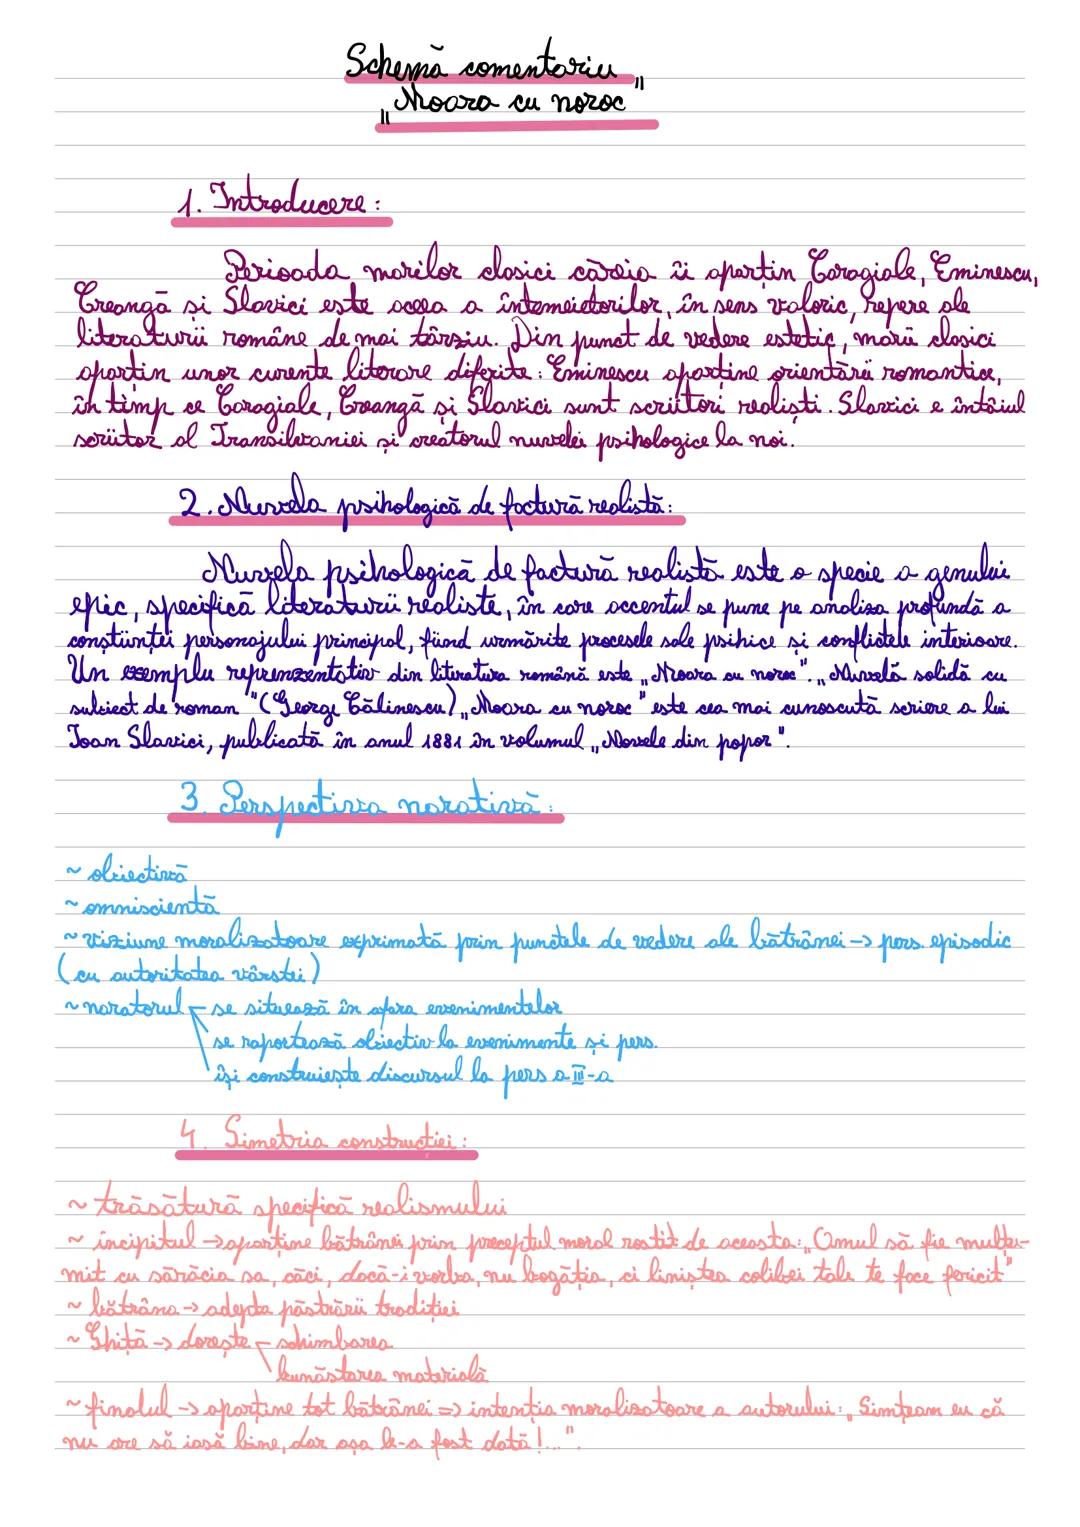 Schemă comentariu
„Moara cu noroc"
1. Introducere:
Perioada marilor clasici căreia îi aparțin Caragiale, Eminescu,
Creangă și Slavici este aceea a întemeietorilor, în sens valoric, repere ale
literaturii române de mai târziu. Din punct de vedere estetic, marii clasici
aparțin unor curente literare diferite: Eminescu aparține orientării romantice,
în timp ce Caragiale, Creangă și Slavici sunt scriitori realiști. Slavici e întâiul
scriitor al Transilvaniei și creatorul nuvelei psihologice la noi.
2. Nuvela psihologică de factură realistă:
Nuvela psihologică de factură realistă este o specie a genului
epic, specifică literaturii realiste, în care accentul se pune pe analiza profundă a
conștiinței personajului principal, fiind urmărite procesele sale psihice și conflictele interioare.
Un exemplu reprezentativ din literatura română este „Moara cu noroc". „Nuvelă solidă cu
subiect de roman" (George Călinescu) „Moara cu noroc" este cea mai cunoscută scriere a lui
Ioan Slavici, publicată în anul 1881 în volumul „Novele din popor".
3. Perspectiva narativă:
~ obiectivă
~ omniscientă
~ viziune moralizatoare exprimată prin punctele de vedere ale bătrânei -> pers. episodic
(cu autoritatea vârstei)
~ naratorul se situează în afara evenimentelor
se raportează obiectiv la evenimente și pers.
își construiește discursul la pers a III-a
4. Simetria construcției:
~ trăsătură specifică realismului
~ incipitul -> aparține bătrânei prin preceptul moral rostit de aceasta: „Omul să fie mulțu-
mit cu sărăcia sa, căci, dacă-i vorba, nu bogăția, ci liniștea colibei tale te face fericit"
~ bătrâna -> adepta păstrării tradiției
~ Ghiță -> dorește schimbarea
bunăstarea materială
~ finalul -> aparține tot bătrânei => intenția moralizatoare a autorului: „Simțeam eu că
nu are să iasă bine, dar așa le-a fost dată!...".